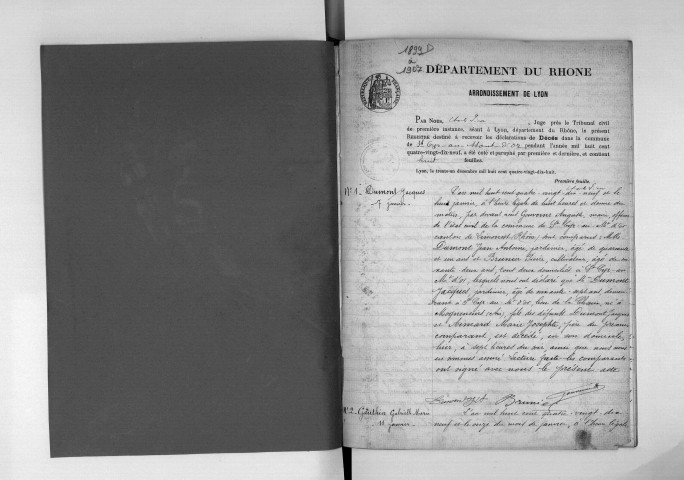 1899
à
1907
DÉPARTEMENT DU RHONE
ARRONDISSEMENT DE LYON
PAR NOUS, , Juge près le Tribunal civil
de première instance, séant à Lyon, département du Rhône, le présent
REGISTRE destiné à recevoir les déclarations de Décès dans la commune
de St Cyr-au-Mont-d'Or pendant l'année mil huit cent
quatre-vingt-dix-neuf, a été coté et paraphé par première et dernière, et contient
huit feuilles.
Lyon, le trente-un décembre mil huit cent quatre-vingt-dix-huit.
Première feuille.
No 1. Dumont Jacques
janvier.
L'an mil huit cent quatre-vingt-dix-neuf et le
janvier, à l'heure légale de huit heures et demie du
matin, par devant nous Gouverne Auguste, maire, officier
de l'état civil de la commune de St Cyr-au-Mt d'or
canton de Limonest, Rhône, sont comparus: MM.
Dumont Jean Antoine, jardinier, âgé de quarante
et un ans et Brunier , cultivateur, âgé de
ante deux ans, tous deux domiciliés à St Cyr-au-
Mt d'or, lesquels nous ont déclaré que Mr Dumont
Jacques, jardinier, âgé de soixante-sept ans, demeu-
rant à St Cyr au Mt d'or, lieu de , né à
Mogneneins (Ain), fils des défunts Dumont Jacques
et Aimard Marie Josephte, père du premier
comparant, est décédé, en son domicile,
hier, à sept heures du soir, ainsi que nous nous
en sommes assuré. Lecture faite les comparants
ont signé avec nous le présent acte
Dumont Brunier
No 2. Gabrielle Marie
11 janvier.
L'an mil huit cent quatre-vingt-dix
neuf et le onze du mois de janvier, à l'heure légale